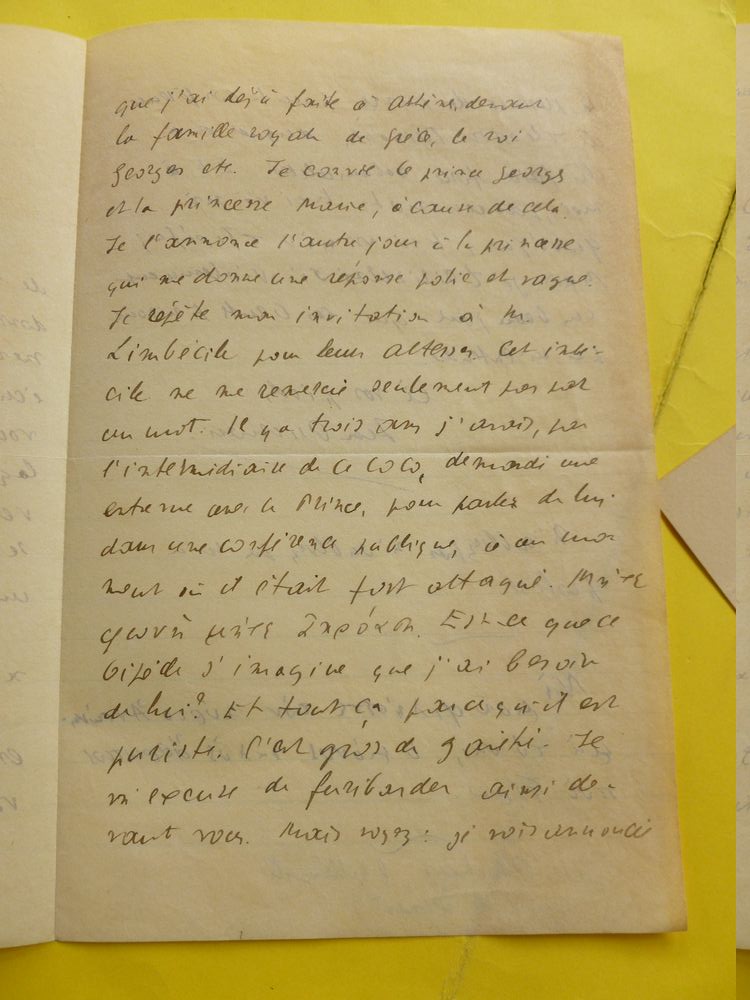 que j'ai déjà faite à Athènes, devant
la famille royale de Grèce, le roi
Georges etc. Je convie le prince Georges
et la princesse Marie, à cause de cela.
Je l'annonce l'autre jour à la princesse
qui me donne une réponse polie et vague.
Je répète mon invitation à M.
Limbécile pour leurs Altesses. Cet imbé-
cile ne me remercie seulement pas par
un mot. Il y a trois ans j'avais, par
l'intermédiaire de ce coco, demandé une
entrevue avec le Prince, pour parler de lui
dans une conférence publique, à un mo-
ment où il était fort attaqué. Μήτε
φωνὴ μήτε ἀκρόαση. Est-ce que ce
bipède s'imagine que j'ai besoin
de lui? Et tout ça parce qu'il est
puriste. C'est gros de gaieté. Je
m'excuse de furibonder ainsi de-
vant vous. Mais voyez: je vois annoncé